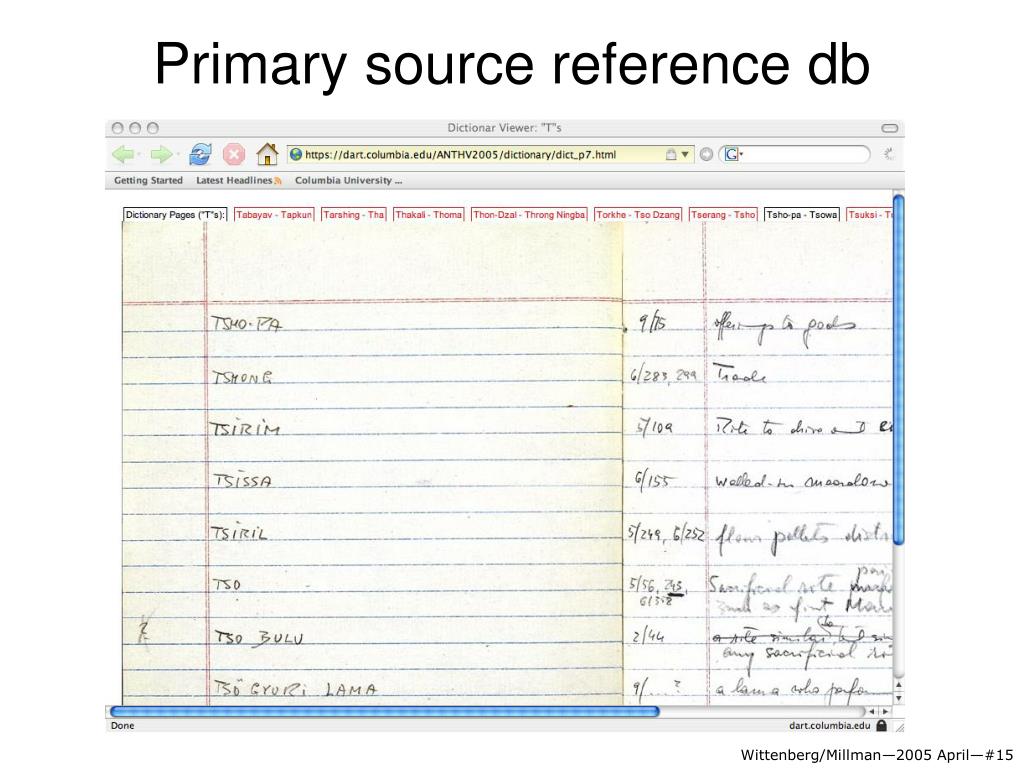 Primary source reference db
Dictionar Viewer: "T"s
https://dart.columbia.edu/ANTHV2005/dictionary/dict_p7.html
G
Getting Started Latest Headlines Columbia University ...
Dictionary Pages ("T"s): Tabayav - Tapkun Tarshing - Tha Thakali - Thoma Thon-Dzal - Throng Ningba Torkhe - Tso Dzang Tserang - Tsho Tsho-pa - Tsowa Tsuksi - T
TSHO-PA 9/75 offerings to gods
TSHONG 6/283, 299 Trade
TSIRIM 5/109 Rite to drive out
TSISSA 6/155 walled-in meadow
TSIRIL 5/249, 6/252 flour pellets
TSO 5/56, 243, Sacrificial rite
6/358 such as first
TSO BULU 2/44 a rite similar to
any sacrificial
TSÖ GYURI LAMA 9/...? a lama who perfor
Done dart.columbia.edu
Wittenberg/Millman—2005 April—#15